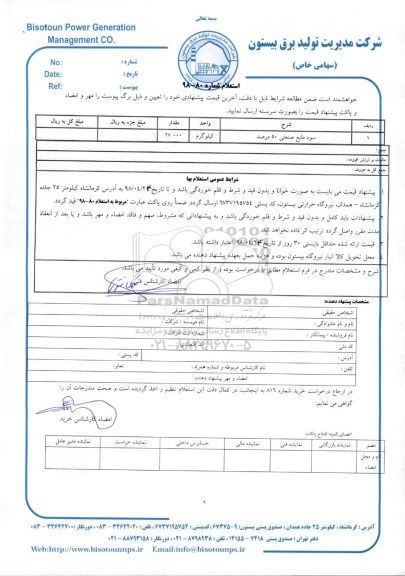 بسمه تعالی
Bisotoun Power Generation
Management CO.
شرکت مدیریت تولید برق بیستون
(سهامی خاص)
No: شماره :
Date: تاریخ :
Ref: پیوست :
استعلام شماره ۸۰-۹۸
خواهشمند است ضمن مطالعه شرایط ذیل با دقت، آخرین قیمت پیشنهادی خود را تعیین و ذیل برگ پیوست را مهر و امضاء
و پاکت پیشنهاد قیمت را بصورت سربسته ارسال نمایید.
ردیف شرح واحد مقدار مبلغ جزء به ریال مبلغ کل به ریال
۱ سود مایع صنعتی ۵۰ درصد کیلوگرم ۲۷۰۰۰
جمع :
مالیات بر ارزش افزوده :
جمع کل به حروف :
شرایط عمومی استعلام بها
۱ پیشنهاد قیمت می بایست به صورت خوانا و بدون قید و شرط و قلم خوردگی باشد و تا تاریخ ۹۸/۰۴/۲۴ به آدرس کرمانشاه کیلومتر ۲۵ جاده
کرمانشاه – همدان، نیروگاه حرارتی بیستون، کد پستی ۶۷۳۷۱۹۵۷۵۴ ارسال گردد. ضمناً روی پاکت عبارت "مربوط به استعلام ۸۰-۹۸" قید گردد.
۲ پیشنهادات باید کامل و بدون قید و شرط و قلم خوردگی باشد و به پیشنهاداتی که مشروط، مبهم و فاقد امضاء و مهر باشد و یا بعد از انقضاء
مدت مقرر واصل گردد ترتیب اثر داده نخواهد شد.
۳ قیمت ارائه شده حداقل بایستی ۳۰ روز از تاریخ اعتبار داشته باشد.
۴ محل تحویل کالا انبار نیروگاه بیستون بوده و هزینه حمل بعهده پیشنهاد دهنده می باشد.
شرح و مشخصات مندرج در فرم استعلام مطابق با درخواست بوده و از نظر کمی و کیفی مورد تأیید می باشد.
امضاء کارشناس فنی
ParsNamadData
۰۲۱-۸۸۳۴۹۶۷۰-۵
مشخصات پیشنهاد دهنده:
اشخاص حقیقی اشخاص حقوقی
نام و نام خانوادگی : نام موسسه / شرکت :
نام فروشنده / پیمانکار :
کد ملی :
آدرس : کد پستی :
تلفن : نام کارشناس مربوطه و شماره همراه : نمابر:
امضاء و مهر پیشنهاد دهنده
در ارجاع درخواست خرید شماره ۸۱۶ به اینجانب، در کمال دقت این استعلام تنظیم و اخذ گردیده است و صحت مندرجات آن را
گواهی می نمایم.
امضاء کارشناس خرید
اعضای کمیته افتتاح پاکات
عضو نماینده بازرگانی نماینده فنی نماینده مالی حسابرس داخلی نماینده حراست نماینده مدیر عامل
نام و محل
امضاء
۱
Web:http://www.bisotounnps.ir Email:info@bisotounnps.ir